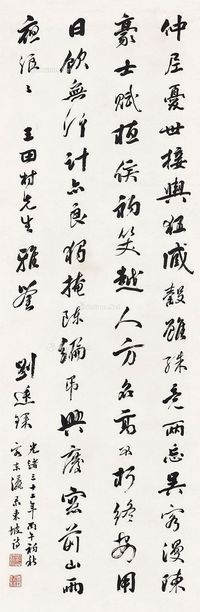 仲尼憂世接輿狂臧穀雖殊竟兩亡吳客漫陳
豪士賦桓侯初笑越人方名高不朽終安用
日飲無何計亦良獨掩陳編弔興廢窗前山雨
夜浪浪 玉田村先生雅鑒
光緒三十二年丙午初秋
劉
東坡詩